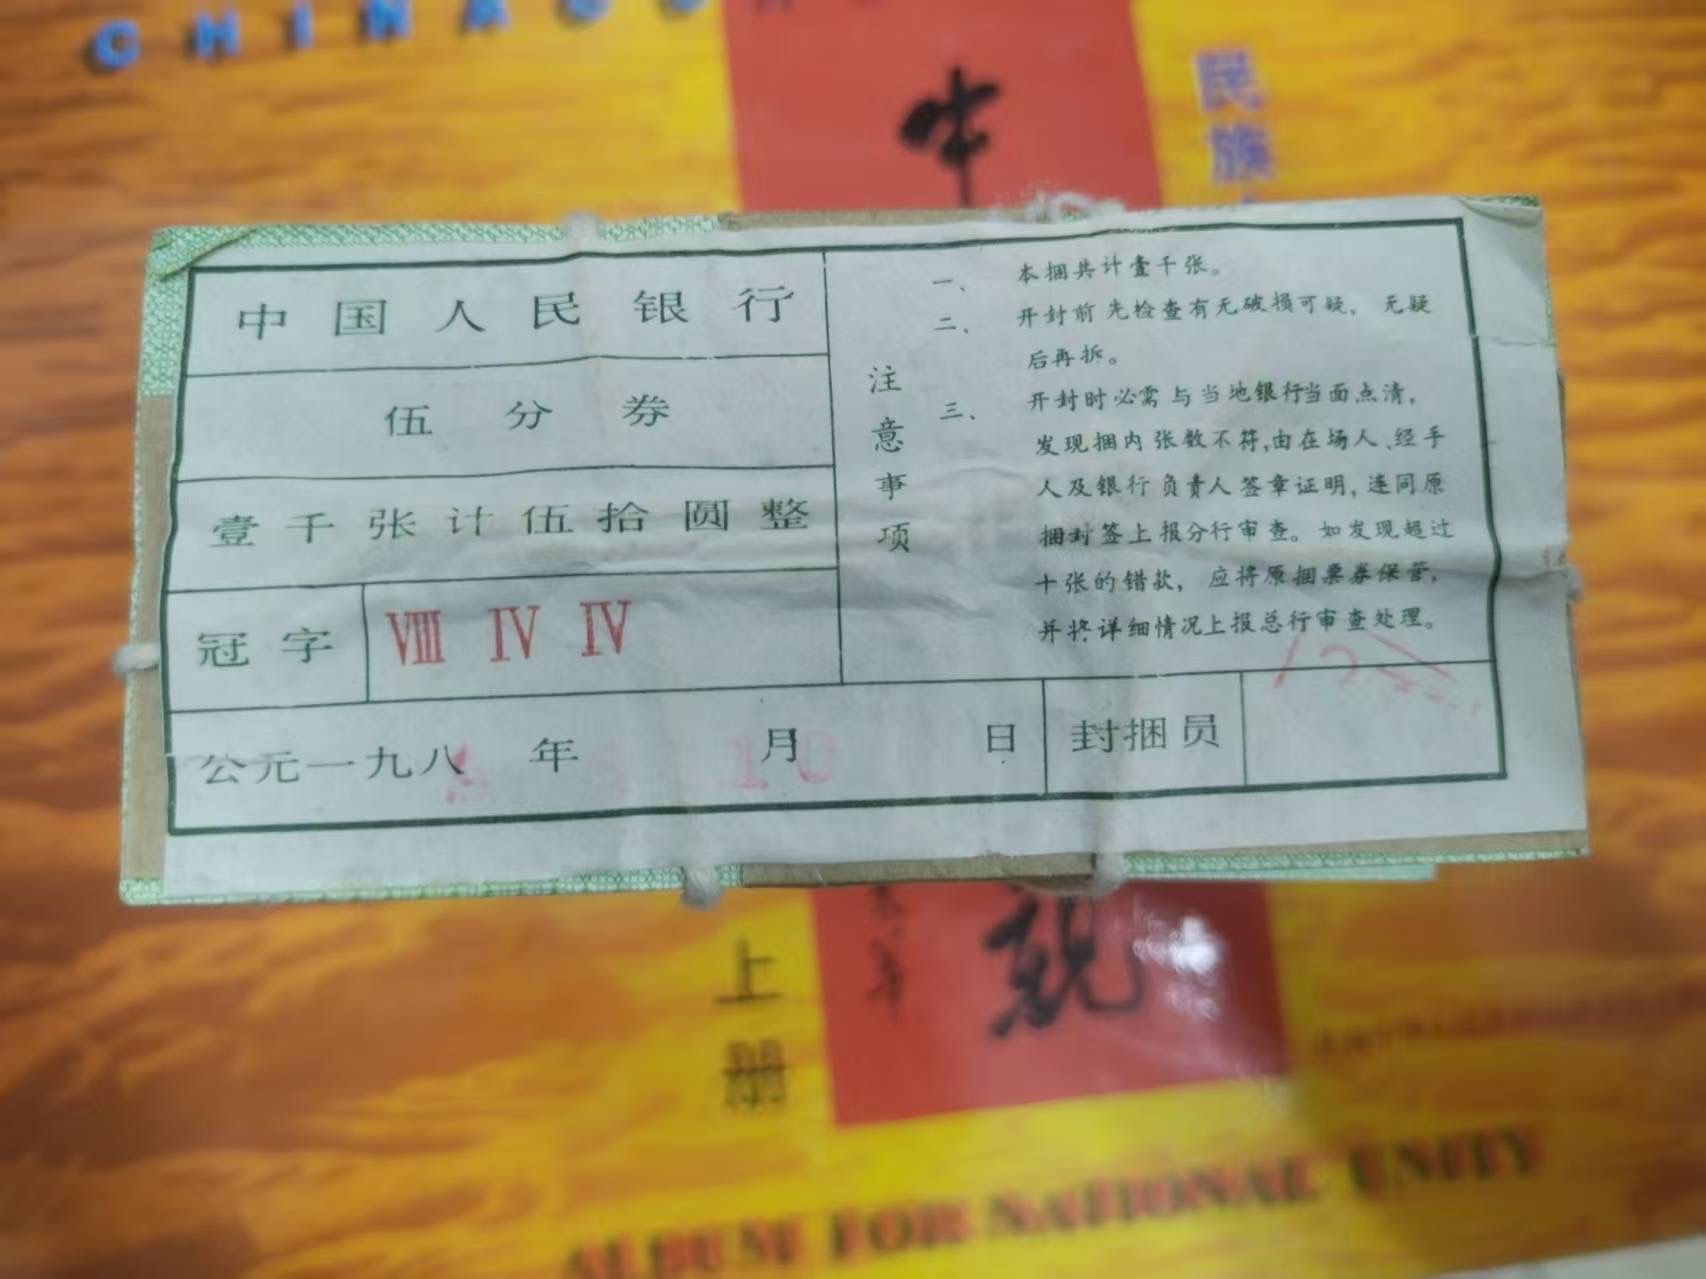 民族
中国人民银行
伍分券
壹千张计伍拾圆整
冠字 Ⅷ Ⅳ Ⅳ
公元一九八 年 10 月 日 封捆员
注意事项
一、本捆共计壹千张。
二、开封前先检查有无破损可疑，无疑
后再拆。
三、开封时必需与当地银行当面点清，
发现捆内张数不符，由在场人、经手
人及银行负责人签章证明，连同原
捆封签上报分行审查。如发现超过
十张的错款，应将原捆票券保管，
并将详细情况上报总行审查处理。
上册
ALBUM FOR NATIONAL UNITY